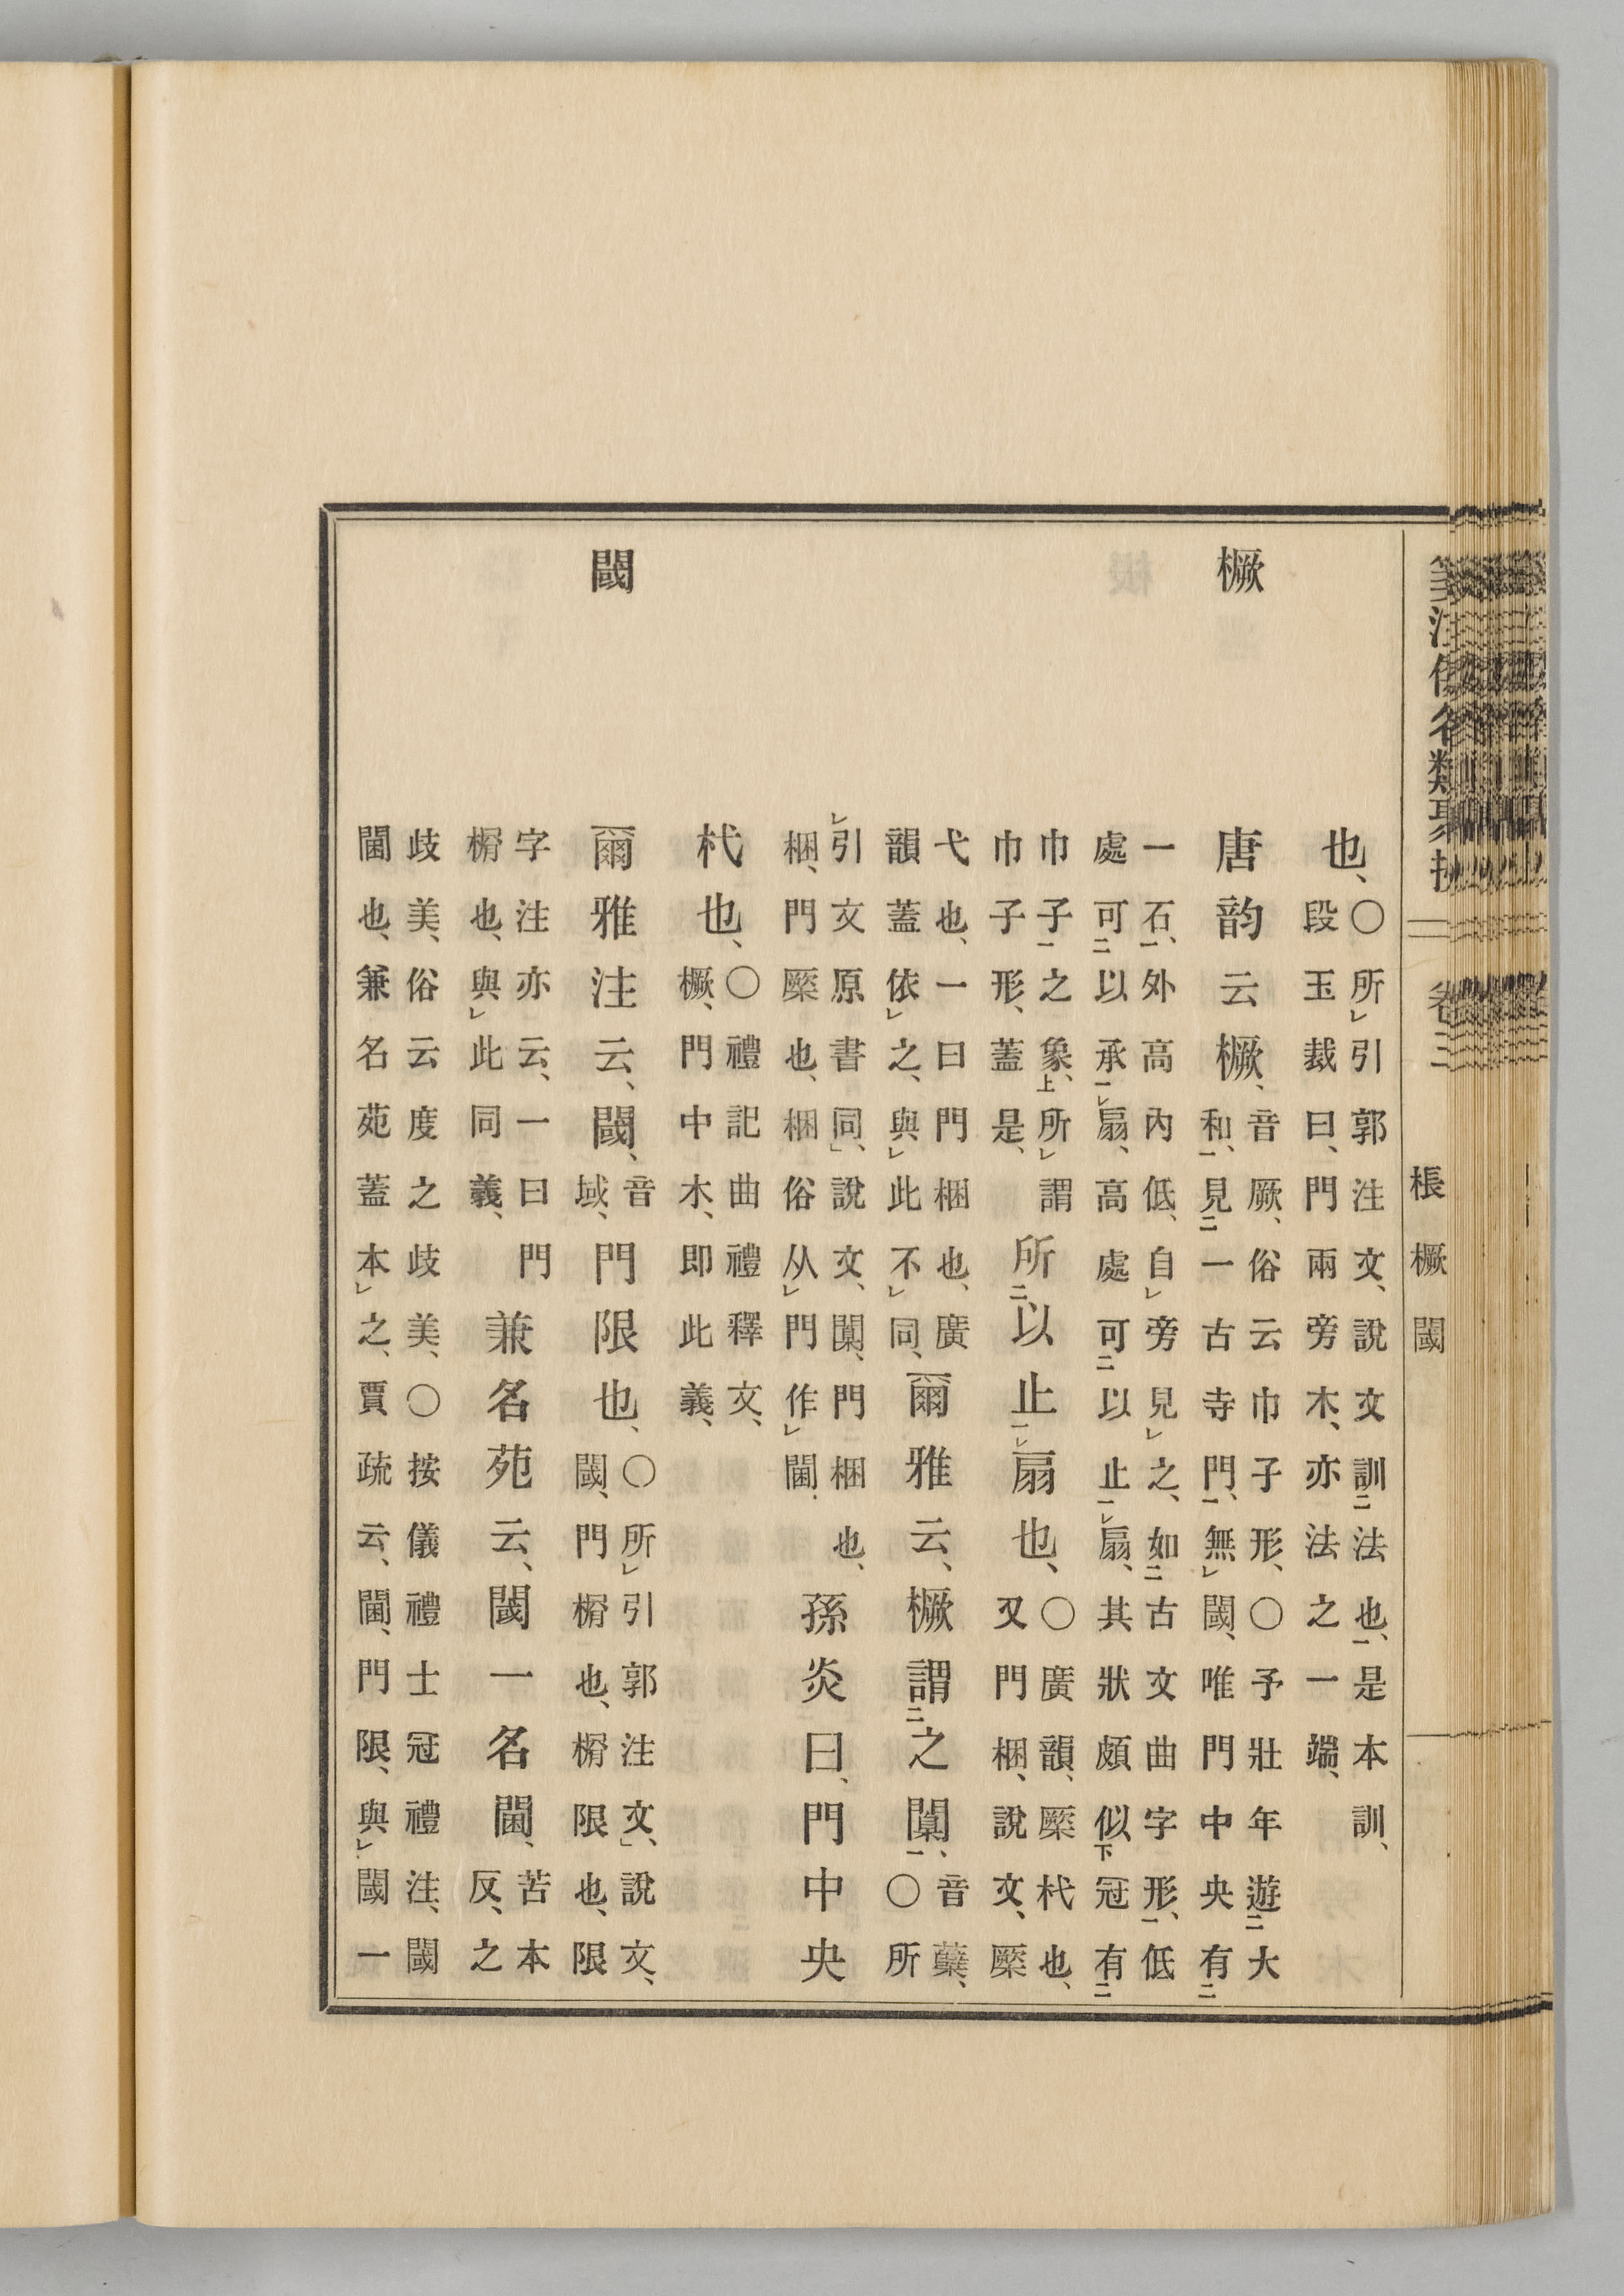 卷三
棖 橛 閾
也、
〇所引郭注文、說文訓法也、是本訓、
段玉裁曰、門兩旁木、亦法之一端、
橛
唐韵云橛、
音厥、俗云巾子形、〇予壯年遊大
和、見一古寺門、無閾、唯門中央有
一石、外高內低、自旁見之、如古文曲字形、低
處可以承扇、高處可以止扇、其狀頗似冠有
巾子之象、所謂
巾子形、蓋是、
所以止扇也、
〇廣韻、橜杙也、
又門梱、說文、橜
弋也、一曰門梱也、廣
韻蓋依之、與此不同、
爾雅云、橛謂之闑、
音蘖、
〇所
引文原書同、說文、闑、門梱也、
梱、門橜也、梱俗从門作閫、
孫炎曰、門中央
杙也、
〇禮記曲禮釋文、
橛、門中木、即此義、
閾
爾雅注云、閾、
音
域、
門限也、
〇所引郭注文、說文、
閾、門榍也、榍限也、限
字注亦云、一曰門
榍也、與此同義、
兼名苑云、閾一名閫、
苦本
反、之
歧美、俗云度之歧美、〇按儀禮士冠禮注、閾
閫也、兼名苑蓋本之、賈疏云、閫、門限、與閾一